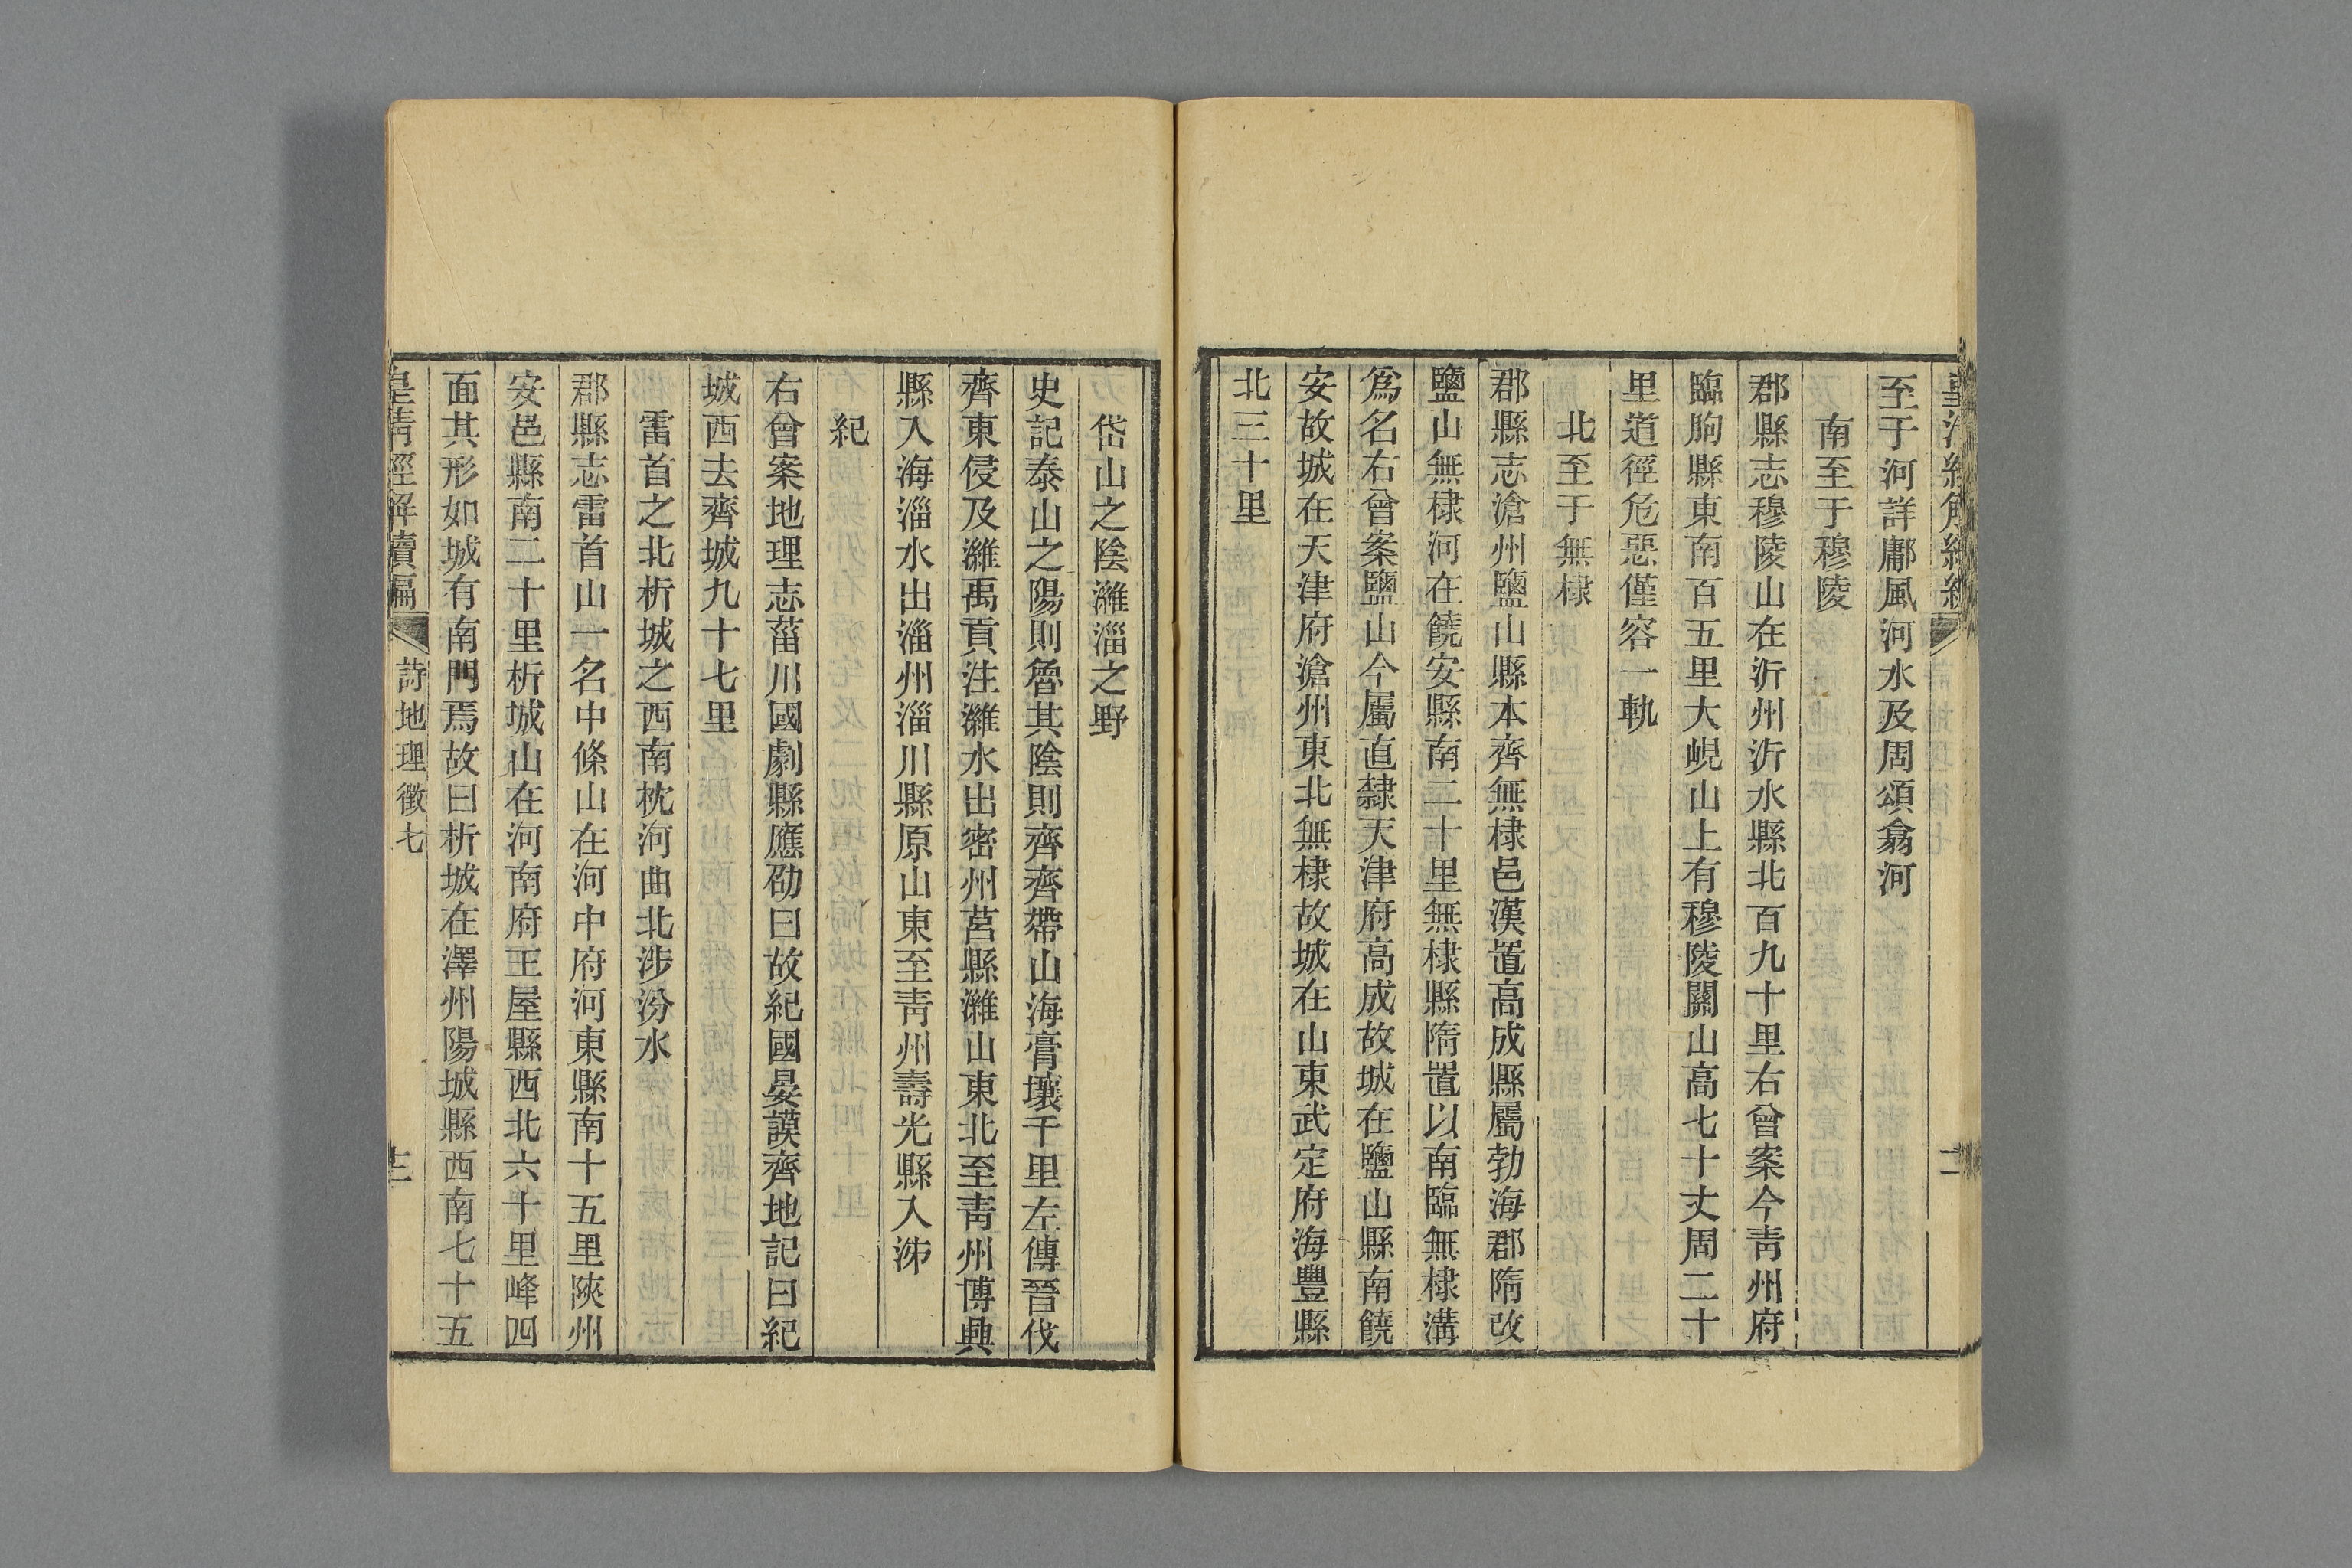 至于河詳鄘風河水及周頌翕河
南至于穆陵
郡縣志穆陵山在沂州沂水縣北百九十里右曾案今青州府
臨朐縣東南百五里大峴山上有穆陵關山高七十丈周二十
里道徑危惡僅容一軌
北至于無棣
郡縣志滄州鹽山縣本齊無棣邑漢置高成縣屬勃海郡隋改
鹽山無棣河在饒安縣南二十里無棣縣隋置以南臨無棣溝
爲名右曾案鹽山今屬直隸天津府高成故城在鹽山縣南饒
安故城在天津府滄州東北無棣故城在山東武定府海豐縣
北三十里
岱山之陰濰淄之野
史記泰山之陽則魯其陰則齊齊帶山海膏壤千里左傳晉伐
齊東侵及濰禹貢注濰水出密州莒縣濰山東北至青州博興
縣入海淄水出淄州淄川縣原山東至青州壽光縣入泲
紀
右曾案地理志菑川國劇縣應劭曰故紀國晏謨齊地記曰紀
城西去齊城九十七里
雷首之北析城之西南枕河曲北涉汾水
郡縣志雷首山一名中條山在河中府河東縣南十五里陝州
安邑縣南二十里析城山在河南府王屋縣西北六十里峰四
面其形如城有南門焉故曰析城在澤州陽城縣西南七十五
皇清經解續編
詩地理徵七